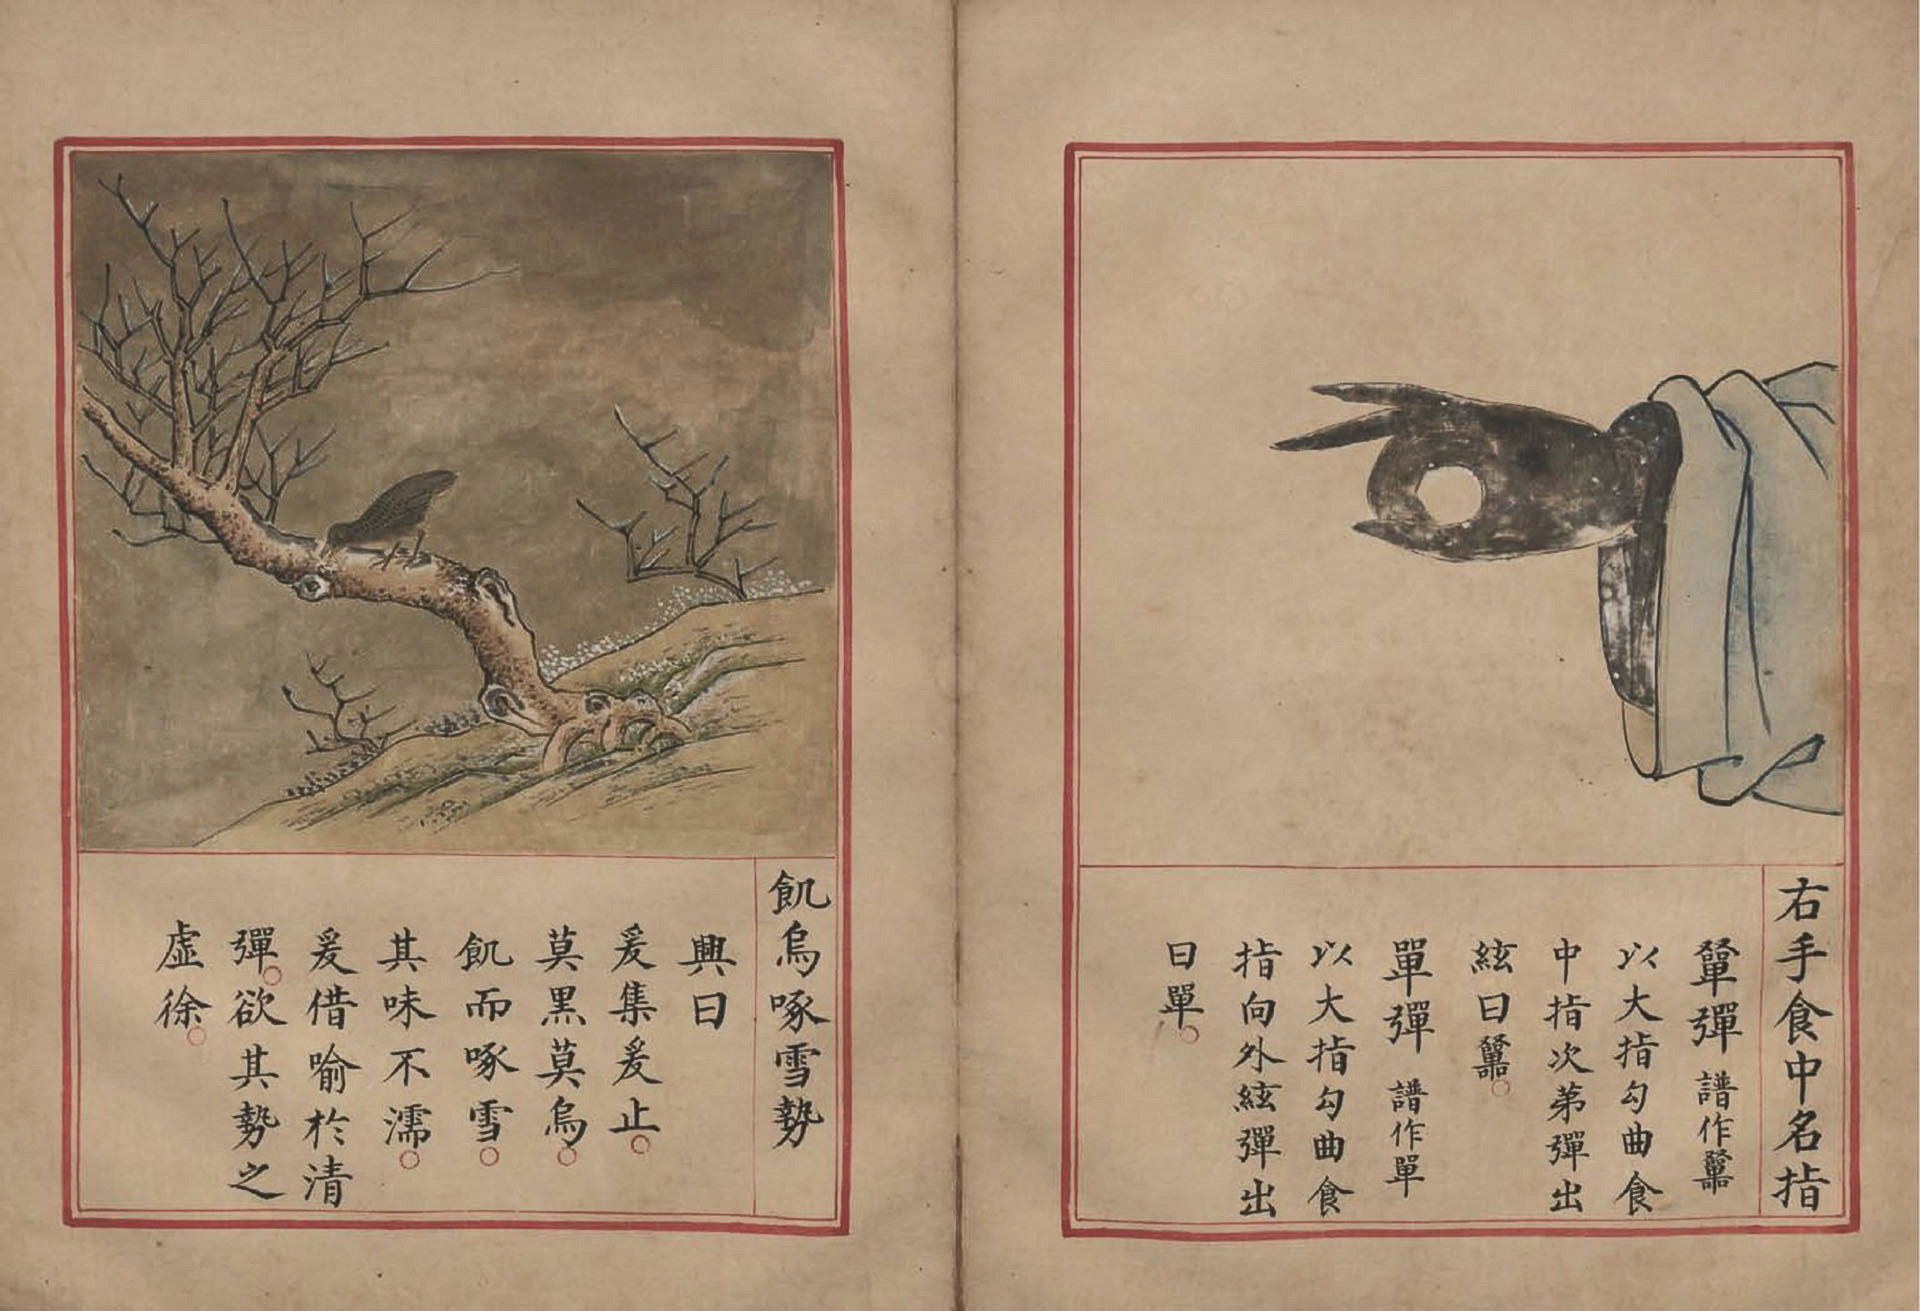 右手食中名指
彈 譜作
以大指勾曲食
中指次第彈出
絃曰。
單彈 譜作單
以大指勾曲食
指向外絃彈出
曰單。
飢烏啄雪勢
興曰
爰集爰止。
莫黑莫烏。
飢而啄雪。
其味不濡。
爰借喻於清
彈。欲其勢之
虛徐。